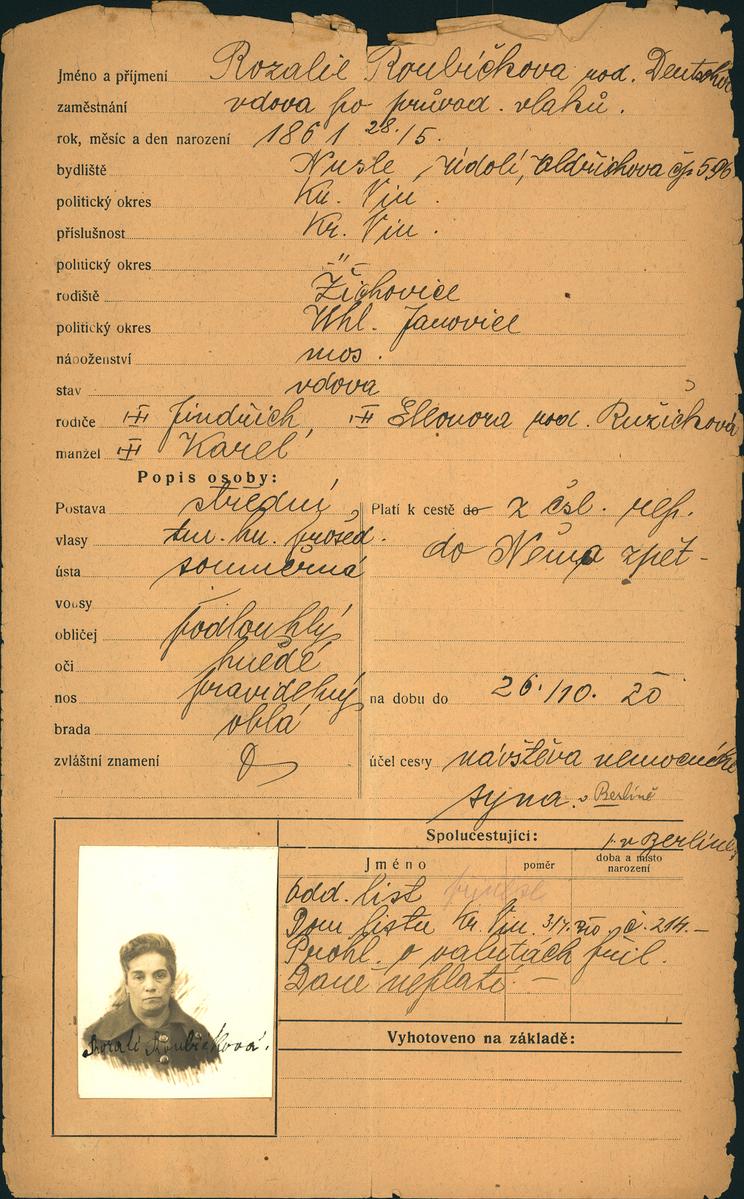 Jméno a příjmení Rozalie Roubíčkova rod. Deutschov
zaměstnání vdova po průvod. vlaků.
rok, měsíc a den narození 1861 28./5.
bydliště Nusle, údolí, Oldřichova čp 596
politický okres Kr. Vin.
příslušnost Kr. Vin.
politický okres –"–
rodiště Žichovice
politický okres Uhl. Janovice
náboženství mos.
stav vdova
rodiče Jindřich, Eleonora rod. Ružičková
manžel Karel
Popis osoby:
Postava střední
vlasy tm. hn. prošed.
ústa souměrná
vousy
obličej podlouhlý
oči hnědé
nos pravidelný
brada oblá
zvláštní znamení
Platí k cestě do z čsl. rep.
do Něma zpět –
na dobu do 26./10. 20
účel cesty návštěva nemocného
syna. v Berlíně
Spolucestující: v Berlíně
Jméno poměr doba a místo narození
odd. list
Dom. listu Kr. Vin. 3/7. 20 č. 214. –
Prohl. o valutách přil.
Daně neplatí. –
Rozalie Roubíčková.
Vyhotoveno na základě: